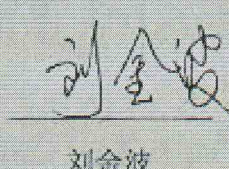 刘金波
刘金波